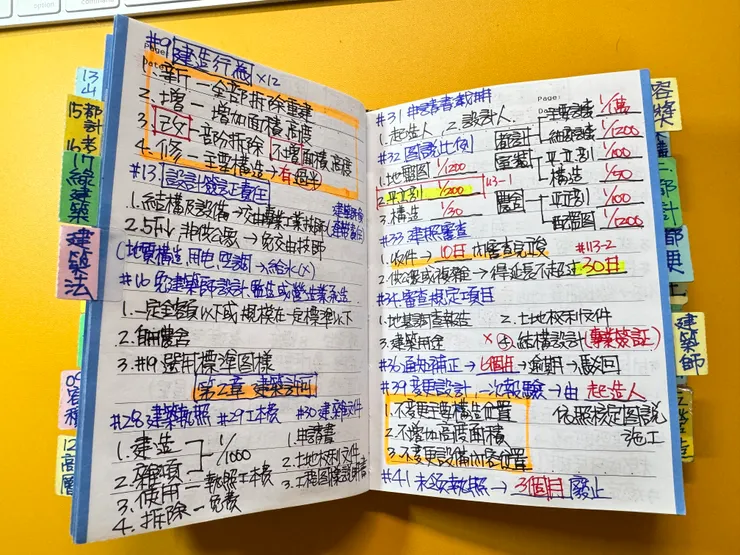 #9 建造行為 x12
1. 新一全部拆除重建
2. 增一增加面積高度
3. 改一部份拆除 不增面積、高度
4. 修一主要構造→有過半
#13 設計簽證責任
1. 結構及設備→交由專業工業技師
2. 5F↓非供公眾→免交由技師
#16 免建築師設計、監造或營造業承造
1. 一定金額以下或規模在一定標準以下
2. 農舍
3. #19 選用標準圖樣
第2章 建築許可
#28 建築執照 #29 工本費 #30 建築文件
1. 建造 1/1000 1. 申請書
2. 雜項 2. 土地權利文件
3. 使用一執照工本費 3. 工程圖樣說明書
4. 拆除一免費
Page:
#31 申請書載明
1. 起造人 2. 設計人
#32 圖說比例
1. 地盤圖 1/200
2. 平立剖 1/200 113-1
3. 構造 1/30
1/1萬
1/1200
平立剖 1/100
構造 1/50
平立剖 1/100
配置圖 1/1200
#33 建照審查
1. 收件→10日內審查完竣 #113-2
2. 供公眾或複雜→得延長不超過30日
#34 審查規定項目
1. 地基調查報告 2. 土地權利文件
3. 建築用途 x ④結構設計(專業簽証)
#36 通知補正→6個月→逾期→駁回
#39 變更設計 一次報驗→由 起造人
1. 不變更主要構造位置 依照核定圖說施工
2. 不增加高度面積
3. 不變更設備內容位置
#41 未領執照→3個月 廢止
13
山
15 都計
16 考
17
綠建築
建築法
09
12 高層
都計
都更
建築師